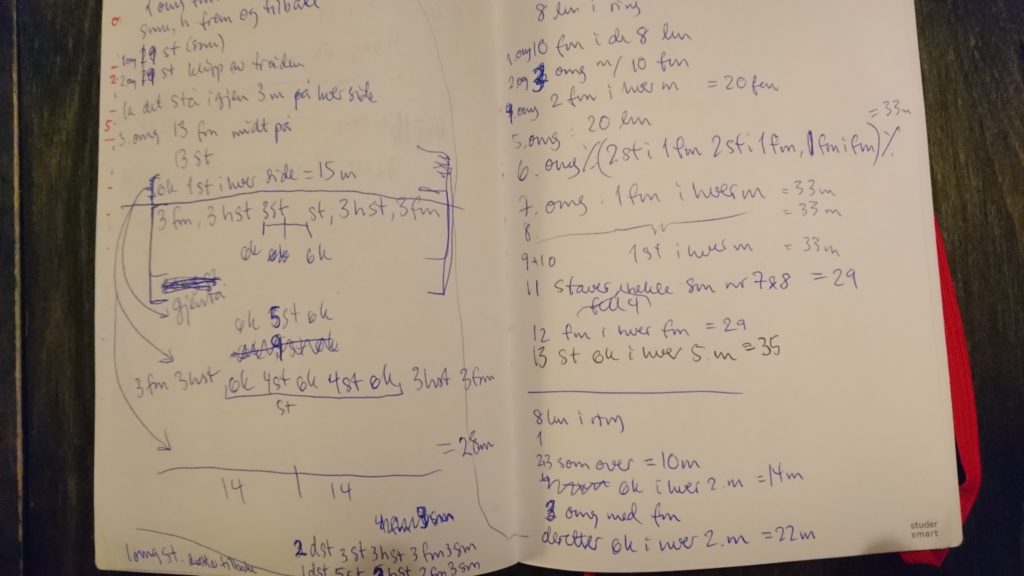 smu, h. frem og tilbake
1 omg 19 st (smu)
2 omg 19 st klipp av tråden
la det stå igjen 3 m på hver side
3. omg 13 fm midt på
13 st
øk 1st i hver side = 15 m
3 fm, 3 hst 3st st, 3 hst, 3 fm
øk øk øk
gjenta
øk 5st øk
3 fm 3 hst, øk 4st øk 4st øk, 3 hst 3 fm
st
= 28m
14 14
2 dst 3 st 3 hst 3 fm 3 sm
1 omg st.
1 dst 5 st 2 hst 2 fm 3 sm
8 lm i ring
1. omg 10 fm i de 8 lm
2 og 3 omg m/ 10 fm
4 omg 2 fm i hver m = 20 fm
5. omg: 20 lm
= 33m
6. omg %(2 st i 1 fm 2 st i 1 fm, 1 fm i fm)%
7. omg: 1 fm i hver m = 33m
8. = 33m
9+10 1 st i hver m = 33m
11 Staver nr 7&8 = 29
fell 4
12 fm i hver fm = 29
13 st. øk i hver 5. m = 35
8 lm i ring
1
23 som over = 10m
øk i hver 2. m = 14m
3 omg med fm
deretter øk i hver 2. m = 22m
studer
smart